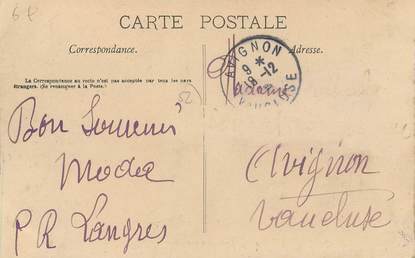 CARTE POSTALE
Correspondance.
Adresse.
La Correspondance au recto n'est pas acceptée par tous les pays
étrangers. (Se renseigner à la Poste.)
AVIGNON
9 *
8-12
VAUCLUSE
Madame
Bon Souvenir
Moda
P R Langres
Avignon
Vaucluse